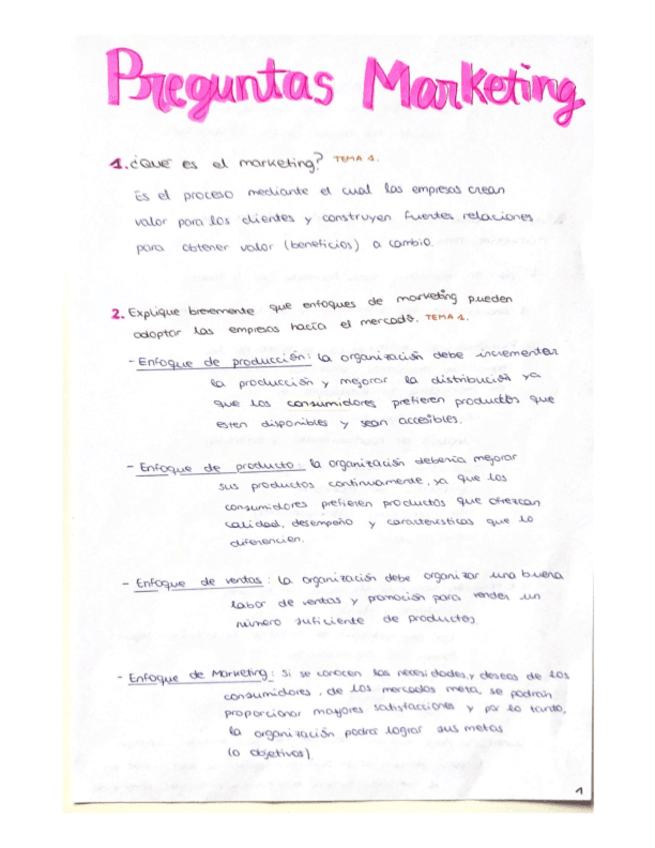 Preguntas Marketing
1. ¿Qué es el marketing? TEMA 1.
Es el proceso mediante el cual las empresas crean
valor para los clientes y construyen fuentes relaciones
para obtener valor (beneficios) a cambio.
2. Explique brevemente que enfoques de marketing pueden
adoptar las empresas hacía el mercado. TEMA 1.
- Enfoque de producción: la organización debe incrementar
la producción y mejorar la distribución ya
que los consumidores prefieren productos que
esten disponibles y sean accesibles.
- Enfoque de producto: la organización debería mejorar
sus productos continuamente, ya que los
consumidores prefieren productos que ofrezcan
calidad, desempeño y características que lo
diferencien.
- Enfoque de ventas: La organización debe organizar una buena
labor de ventas y promoción para vender un
número suficiente de productos.
- Enfoque de Marketing: Si se conocen las necesidades y deseos de los
consumidores, de los mercados meta, se podrán
proporcionar mayores satisfacciones y por lo tanto,
la organización podrá lograr sus metas
(o objetivos).
1